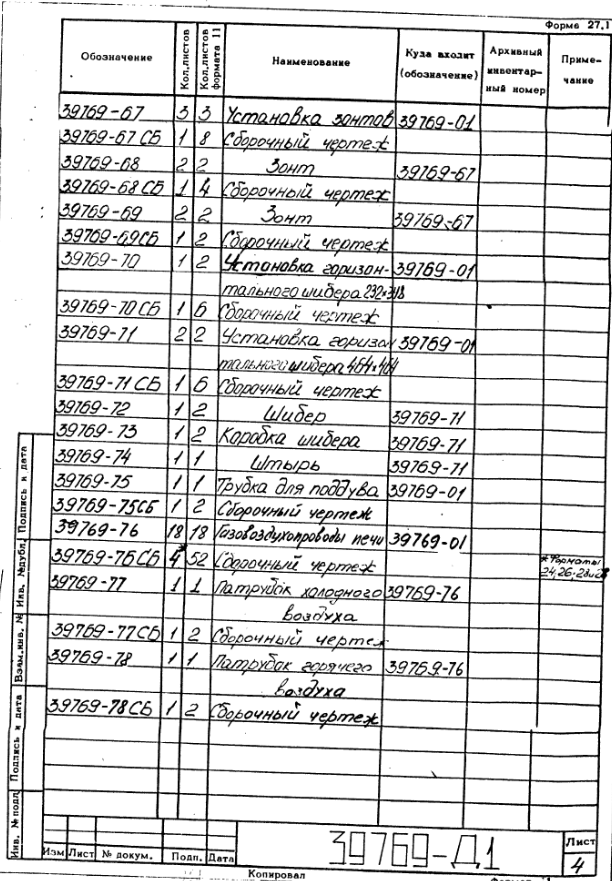 Форма 27.1
Обозначение Кол.листов Кол.листов формата 11 Наименование Куда входит (обозначение) Архивный инвентарный номер Примечание
39769-67 3 3 Установка зонтов 39769-01
39769-67 СБ 1 8 Сборочный чертеж
39769-68 2 2 Зонт 39769-67
39769-68 СБ 1 4 Сборочный чертеж
39769-69 2 2 Зонт 39769-67
39769-69СБ 1 2 Сборочный чертеж
39769-70 1 2 Установка горизон- 39769-01
тального шибера 232×348
39769-70 СБ 1 6 Сборочный чертеж
39769-71 2 2 Установка горизон 39769-01
тального шибера 464×464
39769-71 СБ 1 6 Сборочный чертеж
39769-72 1 2 Шибер 39769-71
39769-73 1 2 Коробка шибера 39769-71
39769-74 1 1 Штырь 39769-71
39769-75 1 1 Трубка для поддува 39769-01
39769-75СБ 1 2 Сборочный чертеж
39769-76 18 18 Газовоздухопроводы печи 39769-01
39769-76 СБ 4* 52 Сборочный чертеж * Форматы
24,26,28и
39769-77 1 1 Патрубок холодного 39769-76
воздуха
39769-77СБ 1 2 Сборочный чертеж
39769-78 1 1 Патрубок горячего 39769-76
воздуха
39769-78 СБ 1 2 Сборочный чертеж
Инв. № подл Подпись и дата Взам.инв. № Инв. №дубл. Подпись и дата
Изм Лист № докум. Подп. Дата
39769-Д1
Лист
4
Копировал